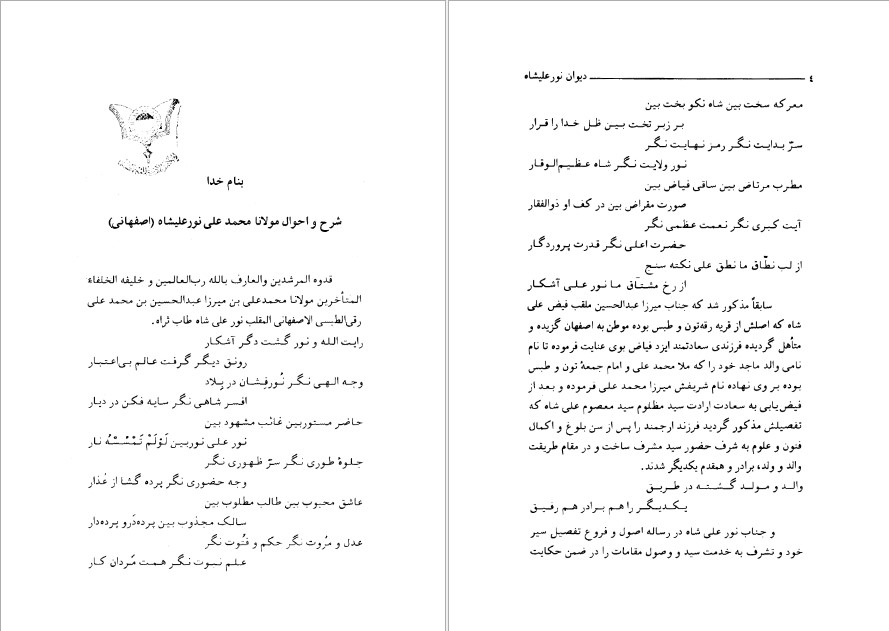 بنام خدا
شرح و احوال مولانا محمد علی نورعلیشاه (اصفهانی)
قدوه المرشدین والعارف بالله رب‌العالمین و خلیفه الخلفاء
المتأخرین مولانا محمدعلی بن میرزا عبدالحسین بن محمد علی
رقی‌الطبسی الاصفهانی المقلب نور علی شاه طاب ثراه.
رایت الله و نور گشت دگر آشکار
رونق دیگر گرفت عالم بی‌اعتبار
وجه الهی نگر نُورفِشان در بِلاد
افسر شاهی نگر سایه فکن در دیار
حاضر مستوربین غائب مشهود بین
نور علی نوربین لَوْلَمْ تَمْسَسْهُ نار
جلوهٔ طوری نگر سرّ ظهوری نگر
وجه حضوری نگر پرده گشا از عُذار
عاشق محبوب بین طالب مطلوب بین
سالک مجذوب بین پرده‌دَرو پرده‌دار
عدل و مرُوت نگر حکم و فتُوت نگر
علم نبوت نگر همت مَردان کار
٤ دیوان نورعلیشاه
معرکه سخت بین شاه نکو بخت بین
بر زبر تخت بین ظل خدا را قرار
سرّ بدایت نگر رمز نهایت نگر
نور ولایت نگر شاه عظیم‌الوقار
مطرب مرتاض بین ساقی فیاض بین
صورت مقراض بین در کف او ذوالفقار
آیت کبری نگر نعمت عظمی نگر
حضرت اعلی نگر قدرت پروردگار
از لب نطّاق ما نطق علی نکته سنج
از رخ مشتاق ما نور علی آشکار
سابقاً مذکور شد که جناب میرزا عبدالحسین ملقب فیض علی
شاه که اصلش از قریه رقه‌تون و طبس بوده موطن به اصفهان گزیده و
متأهل گردیده فرزندی سعادتمند ایزد فیاض بوی عنایت فرموده تا نام
نامی والد ماجد خود را که ملا محمد علی و امام جمعهٔ تون و طبس
بوده بر وی نهاده نام شریفش میرزا محمد علی فرموده و بعد از
فیض‌یابی به سعادت ارادت سید مظلوم سید معصوم علی شاه که
تفصیلش مذکور گردید فرزند ارجمند را پس از سن بلوغ و اکمال
فنون و علوم به شرف حضور سید مشرف ساخت و در مقام طریقت
والد و ولد، برادر و همقدم یکدیگر شدند.
والد و مولد گشته در طریق
یکدیگر را هم برادر هم رفیق
و جناب نور علی شاه در رساله اصول و فروع تفصیل سیر
خود و تشرف به خدمت سید و وصول مقامات را در ضمن حکایت